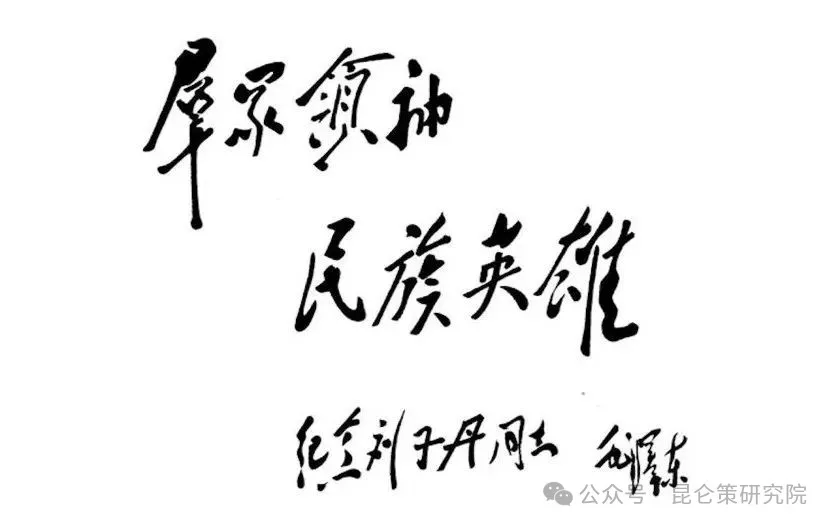 羣众領袖
民族英雄
纪念刘子丹同志 毛泽东
公众号·昆仑策研究院